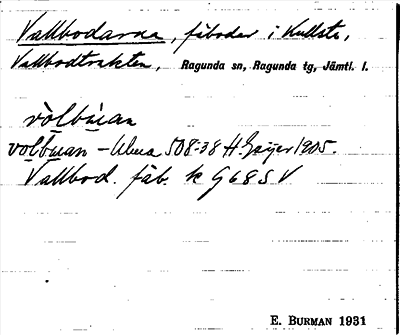 Vallbodarna, fäbodar i Kullsta,
Vallbodtrakten, Ragunda sn, Ragunda tg, Jämtl. l.
vòlbu̇an
vòlbuan – Ulma 508:38 H. Geijer 1905.
Vallbod. fäb. k G 68 S V
E. BURMAN 1931